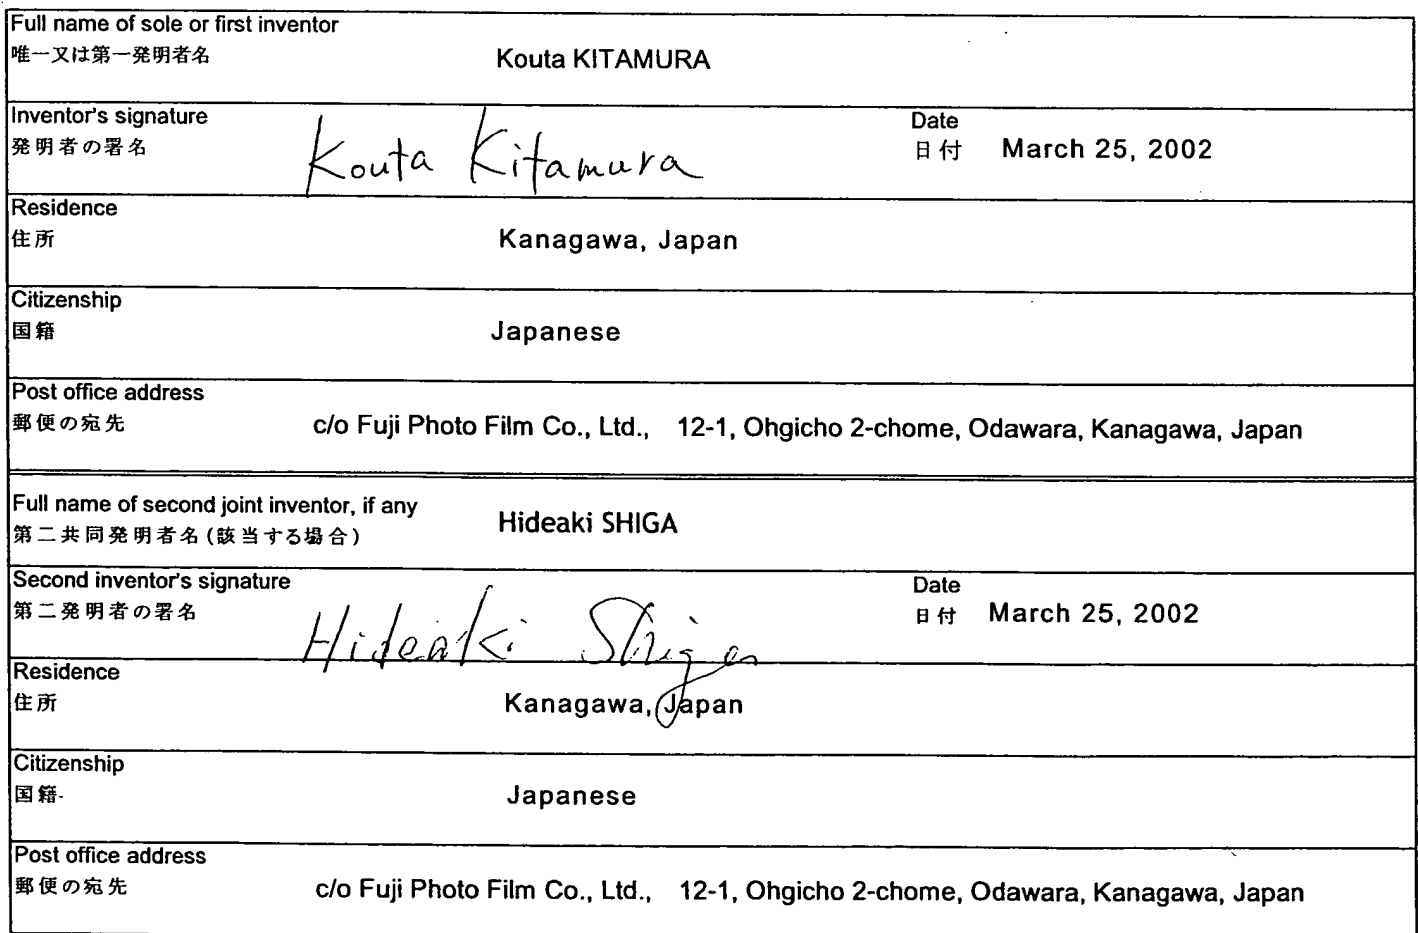 Full name of sole or first inventor
唯一又は第一発明者名 Kouta KITAMURA
Inventor's signature
発明者の署名 Kouta Kitamura
Date
日付 March 25, 2002
Residence
住所 Kanagawa, Japan
Citizenship
国籍 Japanese
Post office address
郵便の宛先 c/o Fuji Photo Film Co., Ltd., 12-1, Ohgicho 2-chome, Odawara, Kanagawa, Japan
Full name of second joint inventor, if any
第二共同発明者名(該当する場合) Hideaki SHIGA
Second inventor's signature
第二発明者の署名 Hideaki Shiga
Date
日付 March 25, 2002
Residence
住所 Kanagawa, Japan
Citizenship
国籍 Japanese
Post office address
郵便の宛先 c/o Fuji Photo Film Co., Ltd., 12-1, Ohgicho 2-chome, Odawara, Kanagawa, Japan